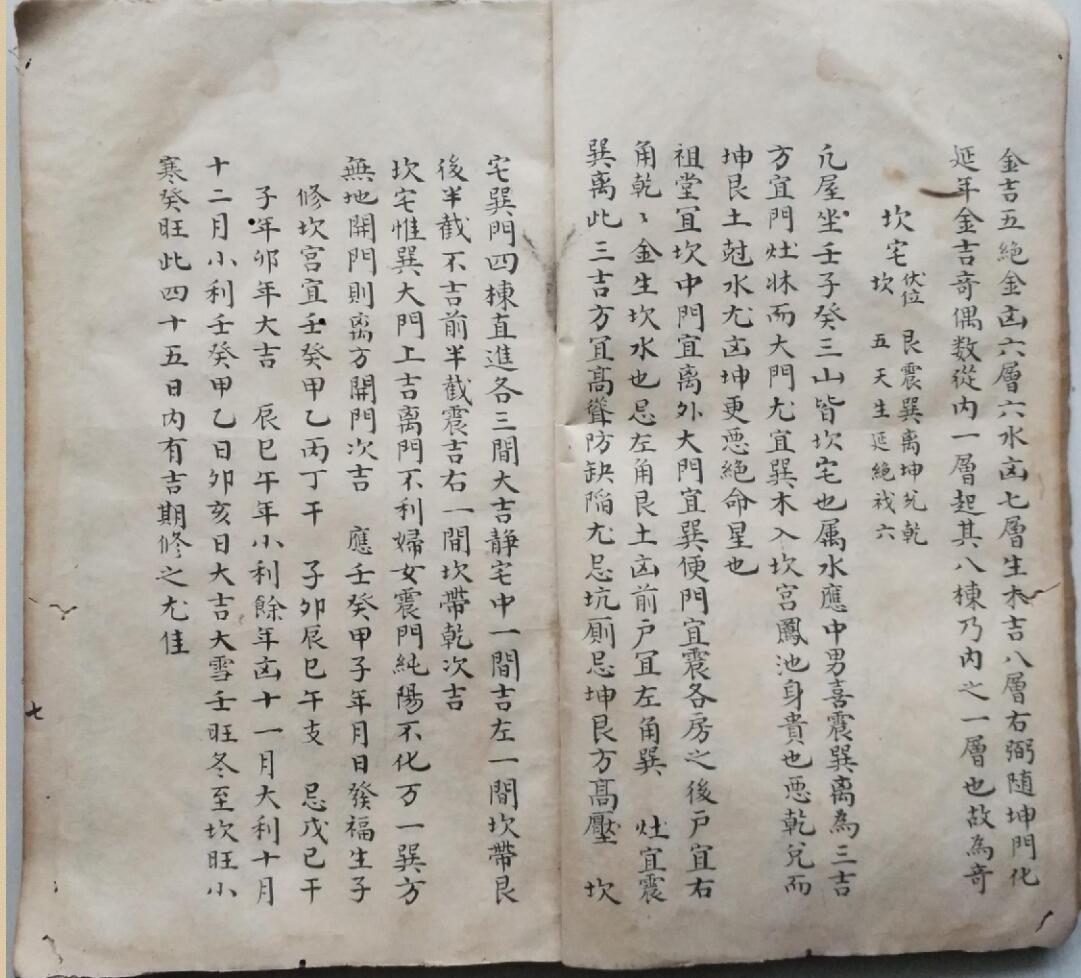 金吉五絶金凶六層六水凶七層生木吉八層右弼隨坤門化
延年金吉奇偶数從内一層起其八棟乃内之一層也故為奇
坎宅 伏位 艮震巽离坤兊乾
坎 五天生延絶祸六
凢屋坐壬子癸三山皆坎宅也属水應中男喜震巽离為三吉
方宜門灶牀而大門尤宜巽木入坎宫鳳池身貴也悪乾兊而
坤艮土尅水尤凶坤更悪絶命星也
祖堂冝坎中門宜离外大門宜巽便門宜震各房之後戸宜右
角乾乾金生坎水也忌左角艮土凶前戸冝左角巽 灶宜震
巽离此三吉方冝髙聳防缺陷尤忌坑厠忌坤艮方髙壓 坎
宅巽門四棟直進各三間大吉静宅中一間吉左一間坎帶艮
後半截不吉前半截震吉右一間坎帶乾次吉
坎宅惟巽大門上吉离門不利婦女震門純陽不化万一巽方
無地開門則离方開門次吉 應壬癸甲子年月日發福生子
修坎宫宜壬癸甲乙丙丁干 子卯辰巳午支 忌戊己干
子年卯年大吉 辰巳午年小利餘年凶十一月大利十月
十二月小利壬癸甲乙日卯亥日大吉大雪壬旺冬至坎旺小
寒癸旺此四十五日内有吉期修之尤佳
七